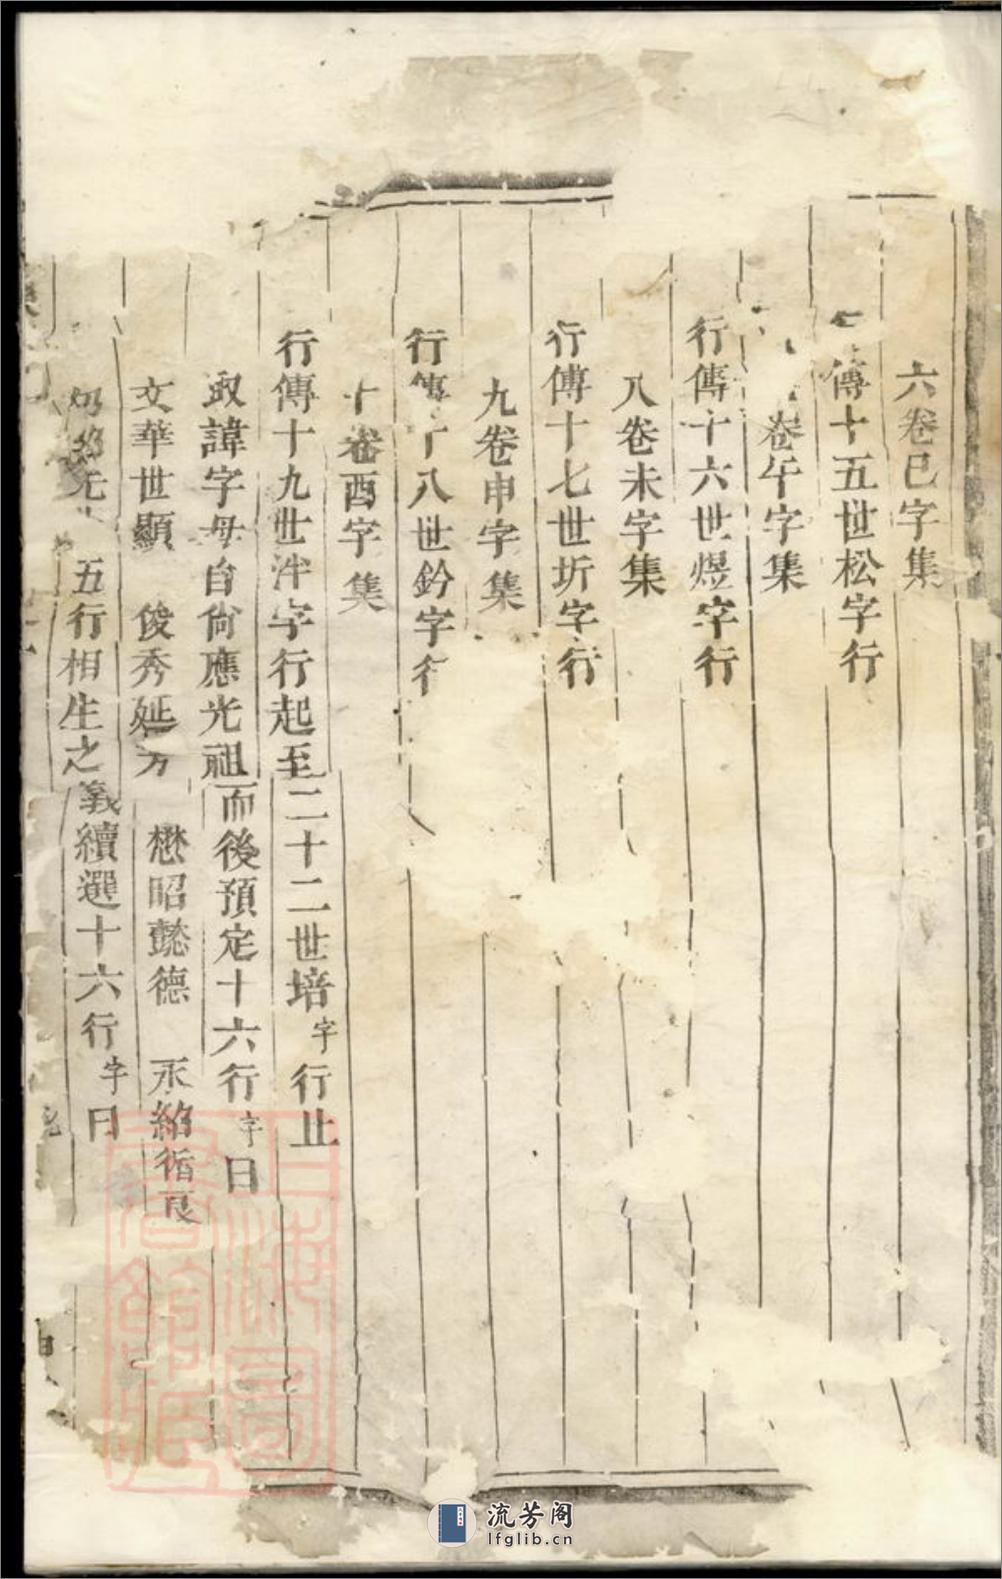 六卷巳字集
傳十五世松字行
卷午字集
行傳十六世煜字行
八卷未字集
行傳十七世圻字行
九卷申字集
行傳十八世鈐字行
十卷酉字集
行傳十九世泮字行起至二十二世培字行止
諱字母自尙應光祖而後預定十六行字曰
文華世顯 俊秀延芳 懋昭懿德 永紹循良
五行相生之義續選十六行字曰
上海圖書館藏
流芳阁
lfglib.cn